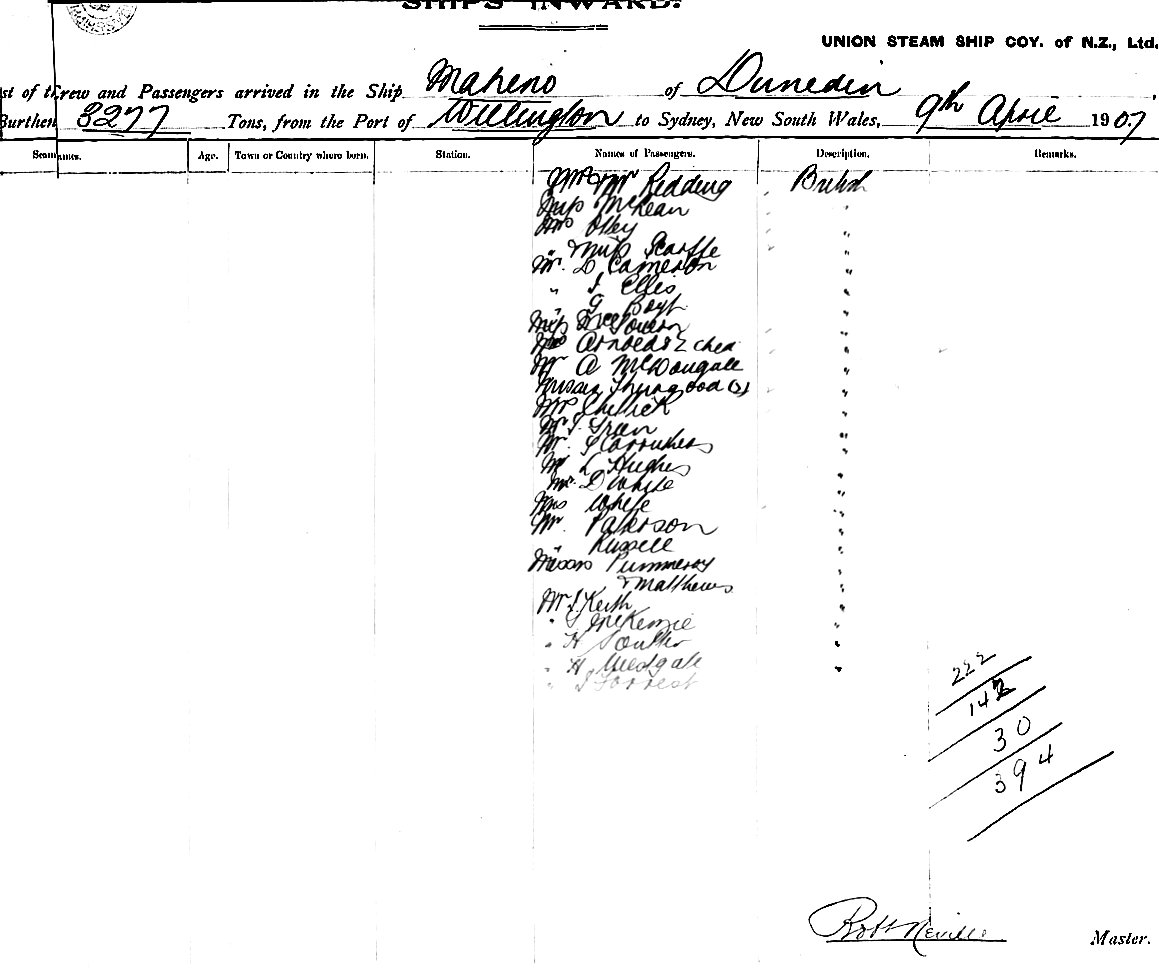 SHIPS INWARD.
UNION STEAM SHIP COY. of N.Z., Ltd.
st of Crew and Passengers arrived in the Ship Maheno of Dunedin
Burthen 3277 Tons, from the Port of Wellington to Sydney, New South Wales, 9th April 1907
Age. Town or Country where born. Station. Names of Passengers. Description. Remarks.
Redding British
Miss McKean "
Mrs Olley "
" Miss Scarffe "
Mr. D Cameron "
" J. Ellis "
" G
Miss
Mrs Arnold & 2 chn "
Mr A McDougall "
Misses (2) "
Mrs "
Mr J. Green "
Mr. Carruthers "
Mr L Hughes "
Mr. D White "
Mrs White "
Mr. Paterson "
" Russell "
Messrs Pummeroy "
& Matthews "
Mr J. Keith "
" McKenzie "
" H Soulter "
" H. Westgate "
" J Forrest
222
142
30
394
Robt Neville Master.